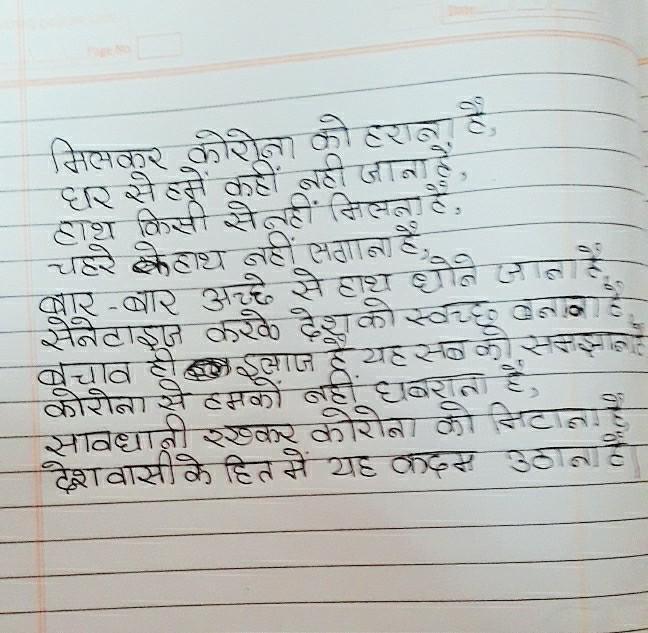 Page No.
Date:
मिलकर कोरोना को हराना है,
घर से हमें कहीं नही जाना है,
हाथ किसी से नहीं मिलना है,
चहरे हाथ नहीं लगाना है,
बार-बार अच्छे से हाथ धोने जाना है,
सेनेटाइज करके देश को स्वच्छ बनाना है,
बचाव ही इलाज है यह सब को समझाना है
कोरोना से हमकों नहीं घबराना है,
सावधानी रखकर कोरोना को मिटाना है
देशवासी के हित में यह कदम उठाना है|